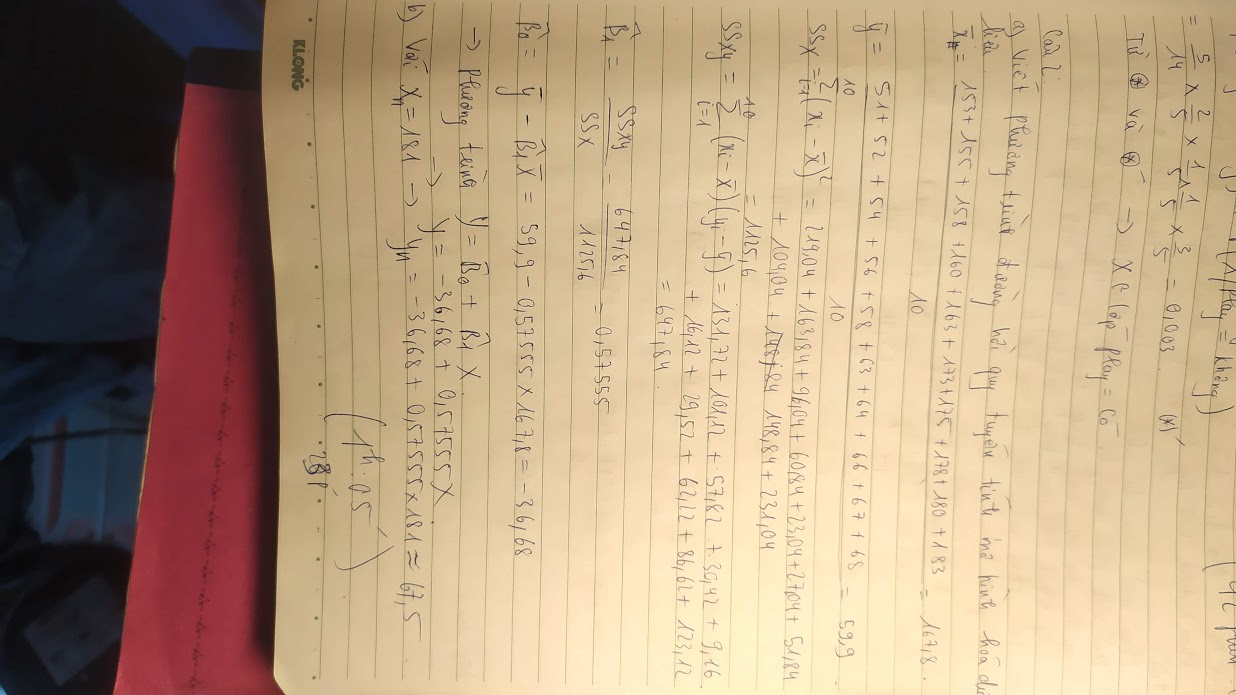 (1/Play = không)
= 5/14 x 2/5 x 1/5 x 1/5 x 3/5 = 0,003 (*)'
Từ (*) và (*)' → X ∈ lớp play = có
Câu 2:
a) Viết phương trình đường hồi quy tuyến tính mô hình hoá dữ
liệu
x̄ = (153+155+158+160+163+173+175+178+180+183)/10 = 167,8.
ȳ = (51+52+54+56+58+63+64+66+67+68)/10 = 59,9
SSx = Σ_{i=1}^{10} (xi - x̄)² = 219,04 + 163,84 + 96,04 + 60,84 + 23,04 + 27,04 + 51,84
+ 104,04 + 148,84 + 231,04
= 1125,6
SSxy = Σ_{i=1}^{10} (xi - x̄)(yi - ȳ) = 131,72 + 101,12 + 57,82 + 30,42 + 9,16
+ 16,12 + 29,52 + 62,22 + 86,62 + 123,12
= 647,84
β̂1 = SSxy / SSx = 647,84 / 1125,6 = 0,57555
β̂0 = ȳ - β̂1 x̄ = 59,9 - 0,57555 x 167,8 = -36,68
→ phương trình y = β̂0 + β̂1 x
→ y = -36,68 + 0,57555 x.
b) Với xn = 181 → yn = -36,68 + 0,57555 x 181 ≈ 67,5
(1h.05')
28p'
KLONG